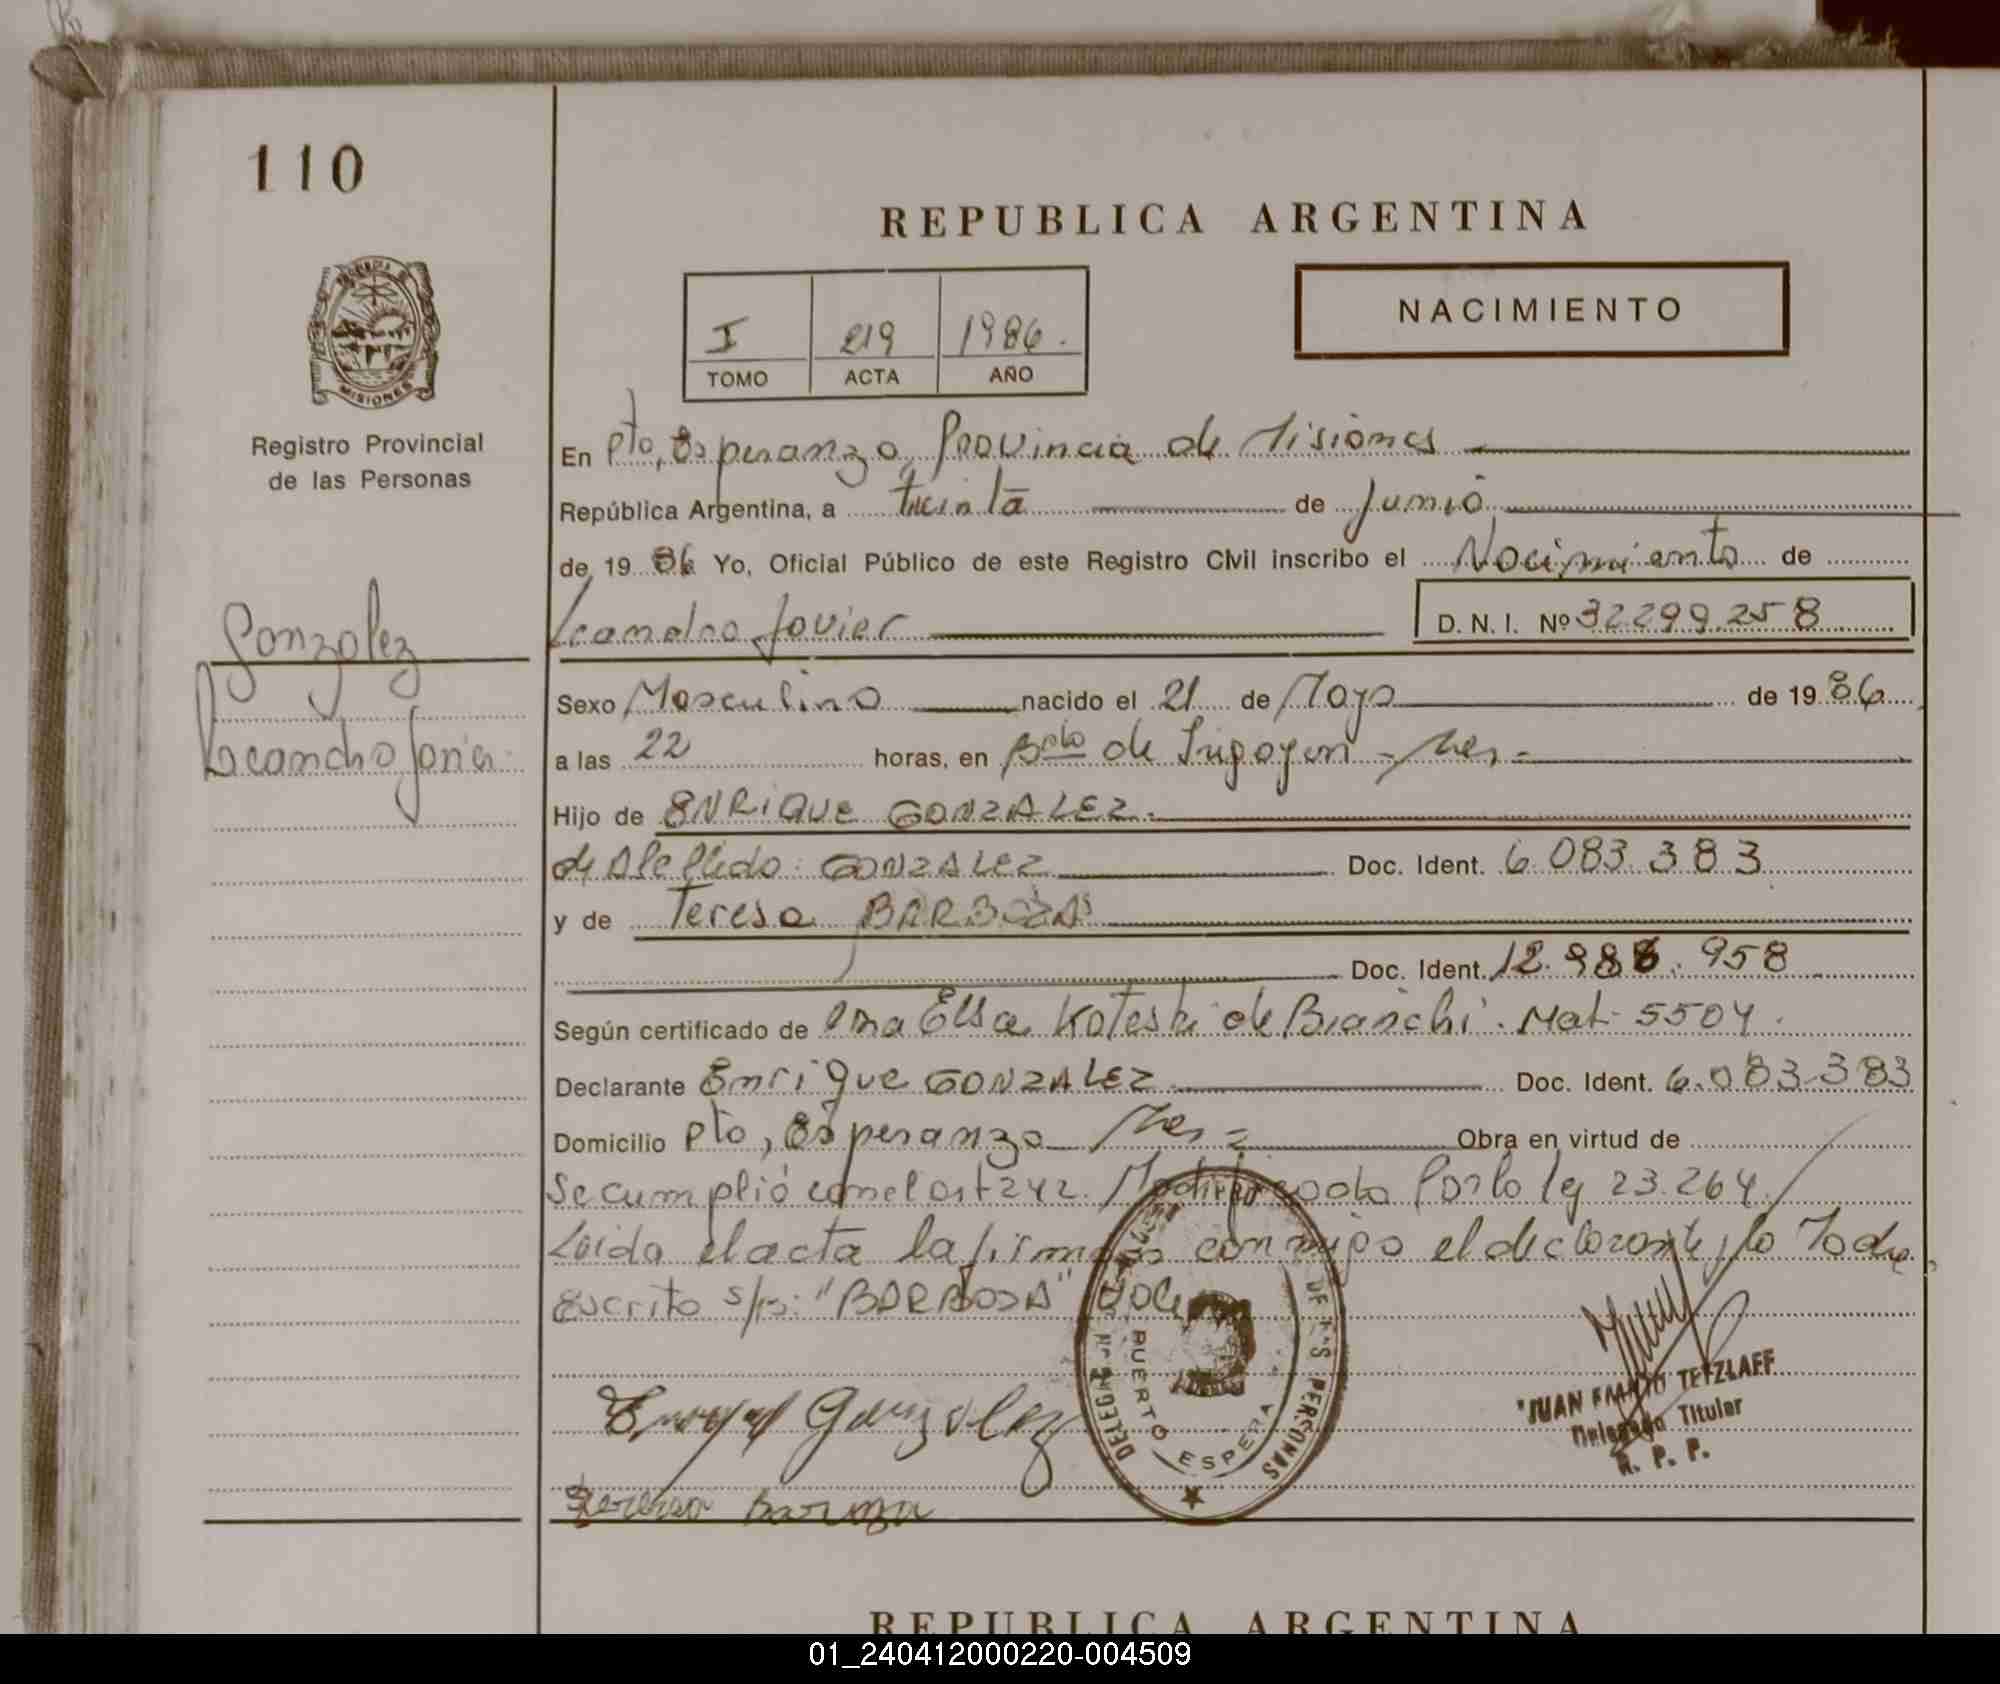 110
REPUBLICA ARGENTINA
NACIMIENTO
I 219 1986.
TOMO ACTA AÑO
MISIONES
Registro Provincial
de las Personas
En Pto, Esperanza, Provincia de Misiones
República Argentina, a treinta de Junio
de 19 86 Yo, Oficial Público de este Registro Civil inscribo el Nacimiento de
Leandro Javier D. N. I. Nº 32.299.258
Gonzalez
Leandro Javier.
Sexo Masculino nacido el 21 de Mayo de 19 86
a las 22 horas, en Bdo de Irigoyen - Mnes -
Hijo de ENRIQUE GONZALEZ.
de Apellido: GONZALEZ Doc. Ident. 6.083.383
y de Teresa BARBOZA
Doc. Ident. 12.986.958
Según certificado de Elsa Koteski de Bianchi. Mat. 5504.
Declarante Enrique GONZALEZ Doc. Ident. 6.083.383
Domicilio Pto, Esperanza Mnes = Obra en virtud de
Se cumplió con el art 242. Modificado Por la ley 23.264.
Leida el acta la firman conmigo el declarante y la Madre,
Escrito s/r: "BARBOSA" Vale
Enrique Gonzalez
Teresa Barboza
DELEG. Nº DE LAS PERSONAS
PUERTO ESPERA
JUAN TETZLAFF
Delegado Titular
R. P. P.
REPUBLICA ARGENTINA
01_240412000220-004509